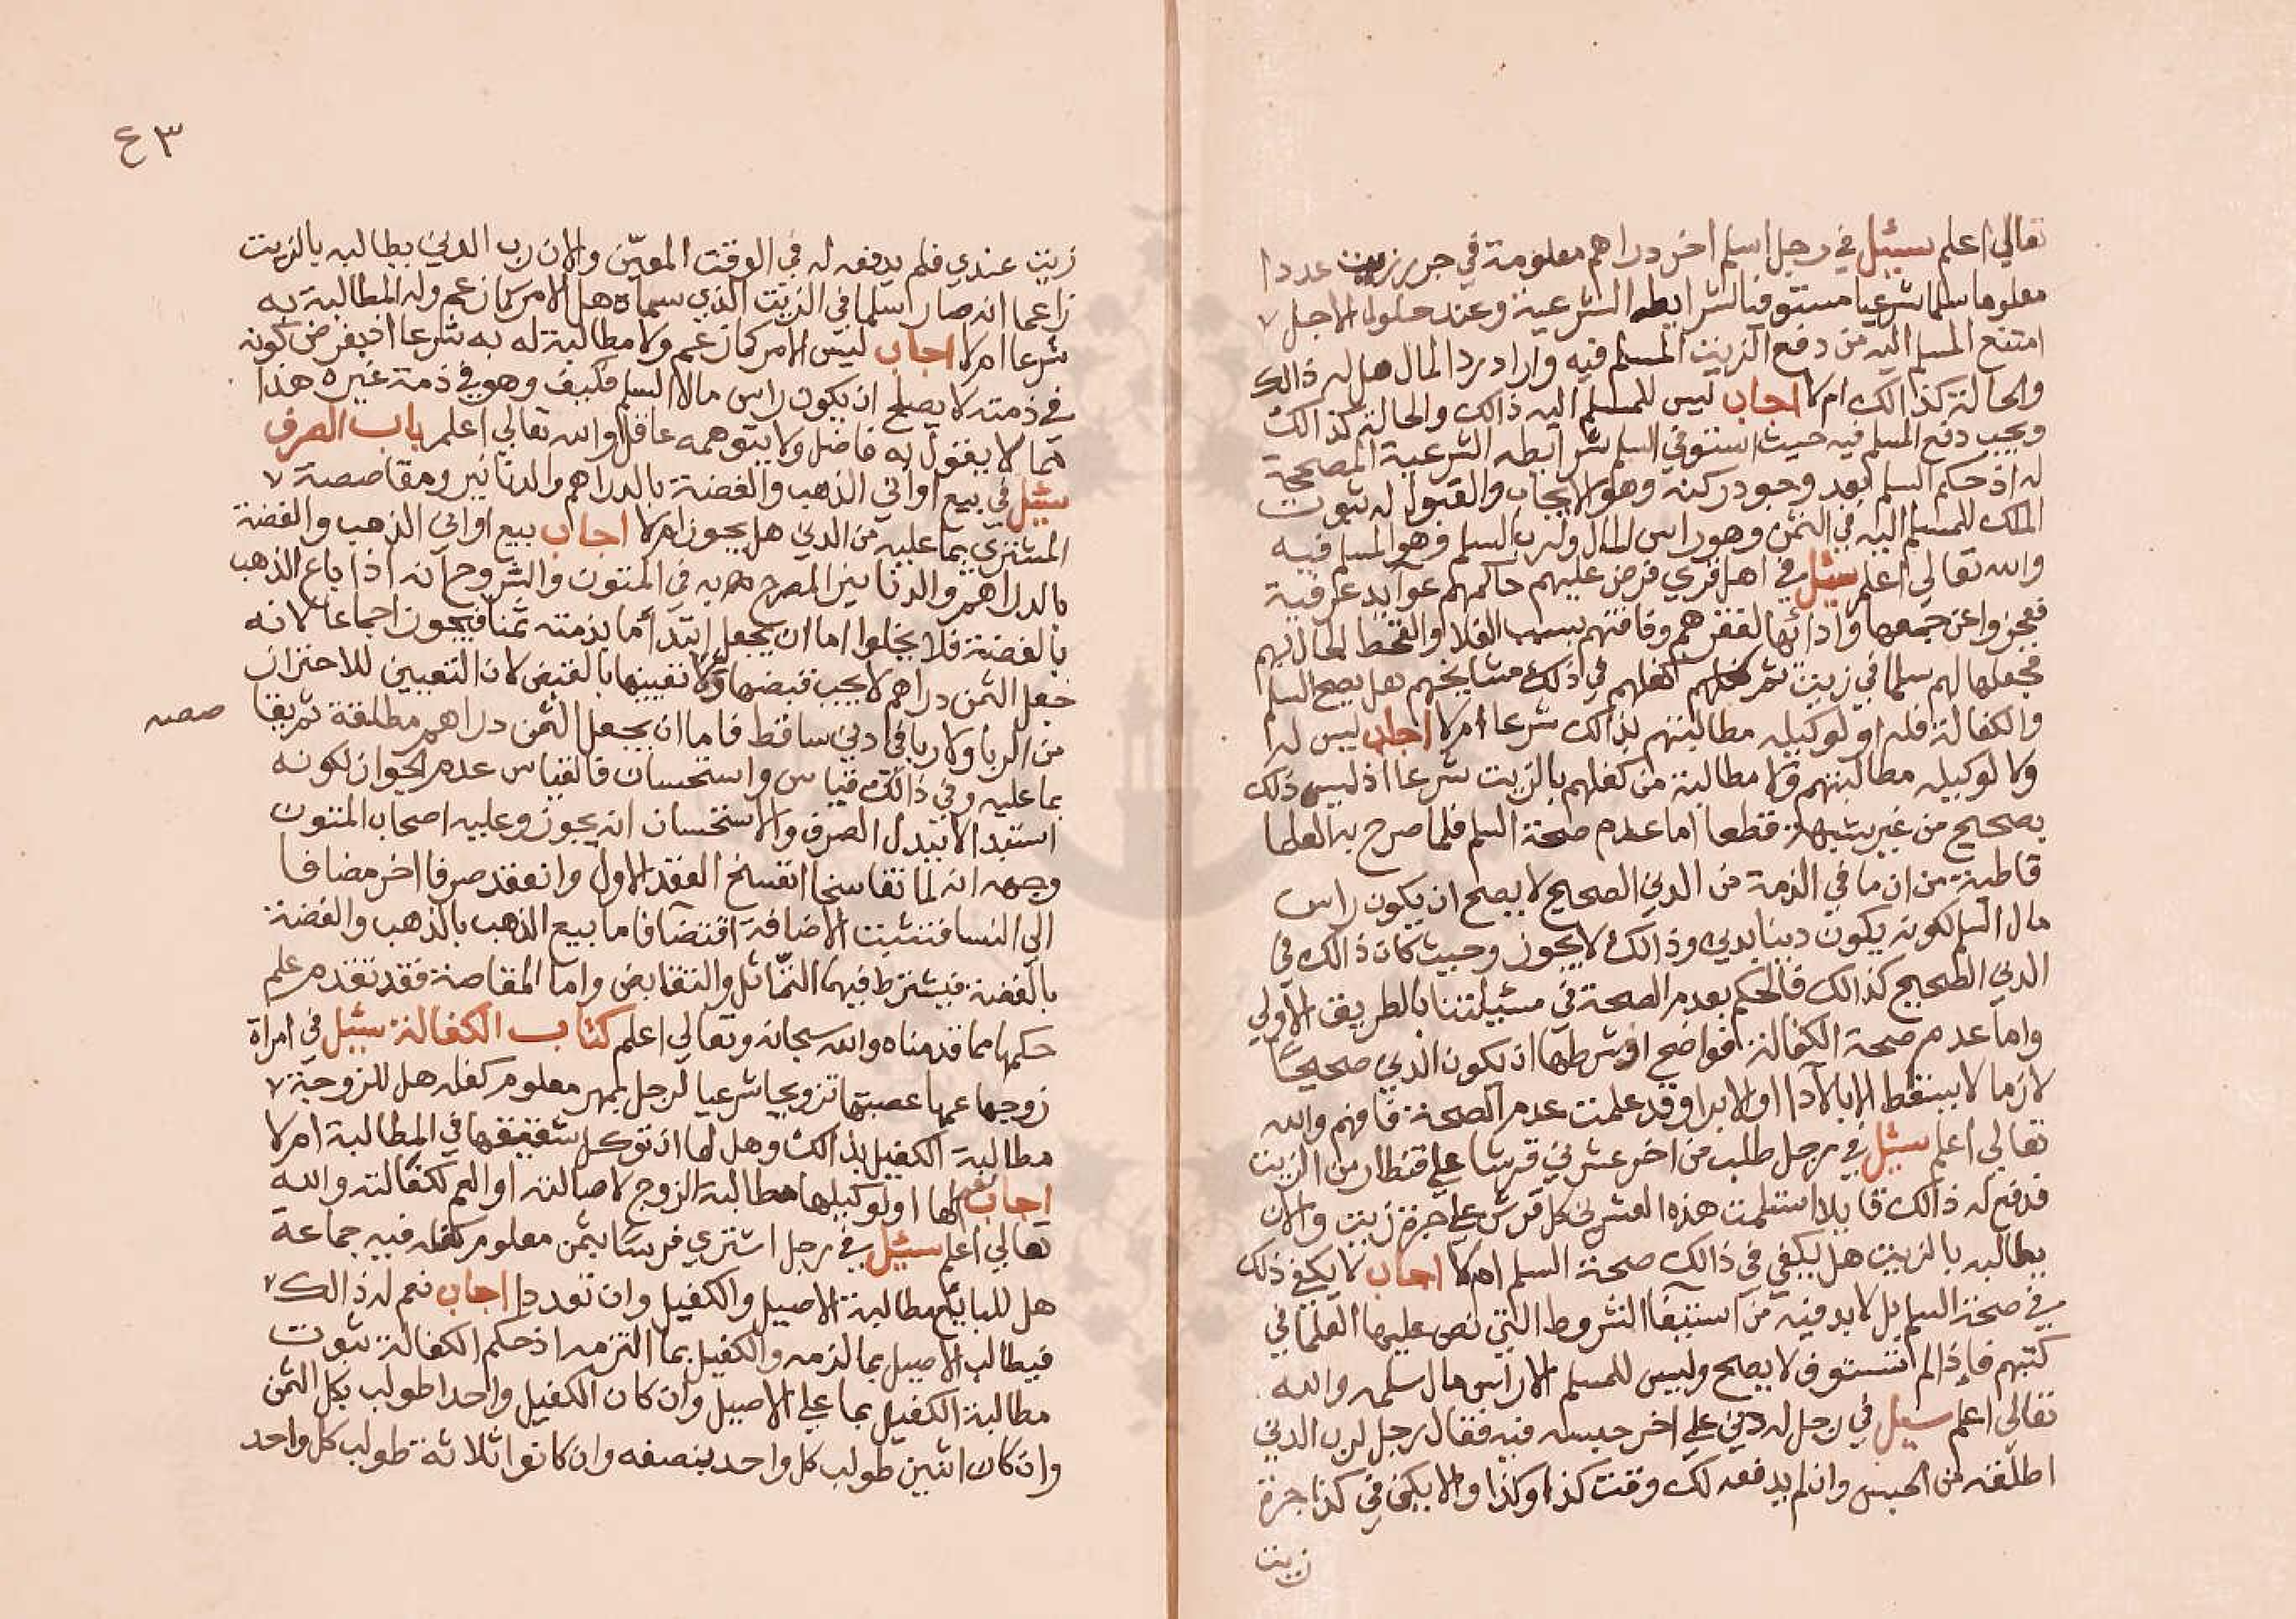 تعالي اعلم سئيل في رجل اسلم اخر دراهم معلومة في جرر زيت عددا
معلوما سلما شرعيا مستوفيا لشرايطه الشرعية وعند حلول الاجل
امتنع المسلم اليه من دفع الزيت المسلم فيه واراد رد المال هل له ذالك
والحالة كذالك ام لا اجاب ليس للمسلم اليه ذالك والحالة كذالك
ويجب دفع المسلم فيه حيث استوفي السلم شرايطه الشرعية المصححة
له اذ حكم السلم بعد وجود ركنه وهو الايجاب والقبول له ثبوت
الملك للمسلم اليه في الثمن وهو راس المال ولرب السلم وهو المسلم فيه
والله تعالي اعلم سئيل في اهل قري فرض عليهم حاكمهم عوايد عرفية
فعجزوا عن جمعها وادائها لفقرهم وفاقتهم بسبب الغلا والقحط الحال بهم
فجعلها لهم سلما في زيت ثم كفلهم في ذلك مشايخهم هل يصح السلم
والكفالة فله او لوكيله مطالبتهم بذالك شرعا ام لا اجاب ليس له
ولا لوكيله مطالبتهم ولا مطالبة من كفلهم بالزيت شرعا اذ ليس ذلك
بصحيح من غير شبهة قطعا اما عدم صحة السلم فلما صرح به العلما
قاطبة من ان ما في الذمة من الدين الصحيح لا يصح ان يكون راس
مال السلم لكونه يكون دينا بدين وذالك لا يجوز وحيث كان ذالك في
الدين الصحيح كذالك فالحكم بعدم الصحة في مسئيلتنا بالطريق الاولي
واما عدم صحة الكفالة فواضح اذ شرطها ان يكون الدين صحيحًا
لازما لا يسقط الا بالادا او الابرا وقد علمت عدم الصحة فافهم والله
تعالي اعلم سئيل في رجل طلب من اخر عشرين قرشا علي قنطار من الزيت
فدفع له ذالك قايلا استلمت هذه العشرين كل قرش علي جرة زيت والان
يطالبه بالزيت هل يكفي في ذالك صحة السلم ام لا اجاب لا يكفي ذلك
في صحة السلم بل لابد فيه من استيفآ الشروط التي نص عليها العلما في
كتبهم فاذا لم تستوف لا يصح وليس للمسلم الا راس مال سلمه والله
تعالي اعلم سئيل في رجل له دين علي اخر حبسه فيه فقال رجل لرب الدين
اطلقه من الحبس وان لم يدفعه لك وقت كذا وكذا والا يكن في كذا جرة
زيت
٤٣
زيت عندي فلم يدفعه له في الوقت المعيّن والان رب الدين يطالبه بالزيت
زاعما انه صار سلما في الزيت الذي سماه هل الامر كما زعم وله المطالبة به
شرعا ام لا اجاب ليس الامر كما زعم ولا مطالبة له به شرعا اذ بفرض كونه
في ذمته لا يصلح ان يكون راس مال السلم فكيف وهو في ذمة غيره هذا
مما لا يقول به فاضل ولا يتوهمه عاقل والله تعالي اعلم باب الصرف
سئيل في بيع اواني الذهب والفضة بالدراهم والدنانير ومقاصصة
المشتري بما عليه من الدين هل يجوز ام لا اجاب بيع اواني الذهب والفضة
بالدراهم والدنانير المصرح به في المتون والشروح انه اذا باع الذهب
بالفضة فلا يخلوا اما ان يجعل ابتدآ ما بذمته ثمنا فيجوز اجماعا لانه
جعل الثمن دراهم لا يجب قبضها ولا تعيينها بالقبض لان التعيين للاحتراز
من الربا ولا ربا في دين ساقط فاما ان يجعل الثمن دراهم مطلقة ثم يقا
صصه
بما عليه وفي ذالك قياس واستحسان فالقياس عدم الجواز لكونه
استبدالا ببدل الصرف والاستحسان انه يجوز وعليه اصحاب المتون
وجهه انه لما تقاسخا انفسخ العقد الاول وانعقد صرفا اخر مضافا
الي النسا فتثبت الاضافة اقتضآ فاما بيع الذهب بالذهب والفضة
بالفضة فيشترط فيهما التمّاثل والتقابض واما المقاصة فقد تقدم علم
حكمها مما قدمناه والله سبحانه وتعالي اعلم كتاب الكفالة سئيل في امراة
زوجها عمها عصبتها تزويجا شرعيا لرجل بمهر معلوم كفله هل للزوجة
مطالبة الكفيل بذالك وهل لها ان توكل شقيقها في المطالبة ام لا
اجاب نعم لها او لوكيلها مطالبة الزوج لاصالته او العم لكفالته والله
تعالي اعلم سئيل في رجل اشتري فرسًا بثمن معلوم كفله فيه جماعة
هل للبايع مطالبة الاصيل والكفيل وان تعددا اجاب نعم له ذالك
فيطالب الاصيل بما لزمه والكفيل بما التزمه اذ حكم الكفالة ثبوت
مطالبة الكفيل بما علي الاصيل وان كان الكفيل واحدا طولب بكل الثمن
وان كان اثنين طولب كل واحد بنصفه وان كانوا ثلاثة طولب كل واحد